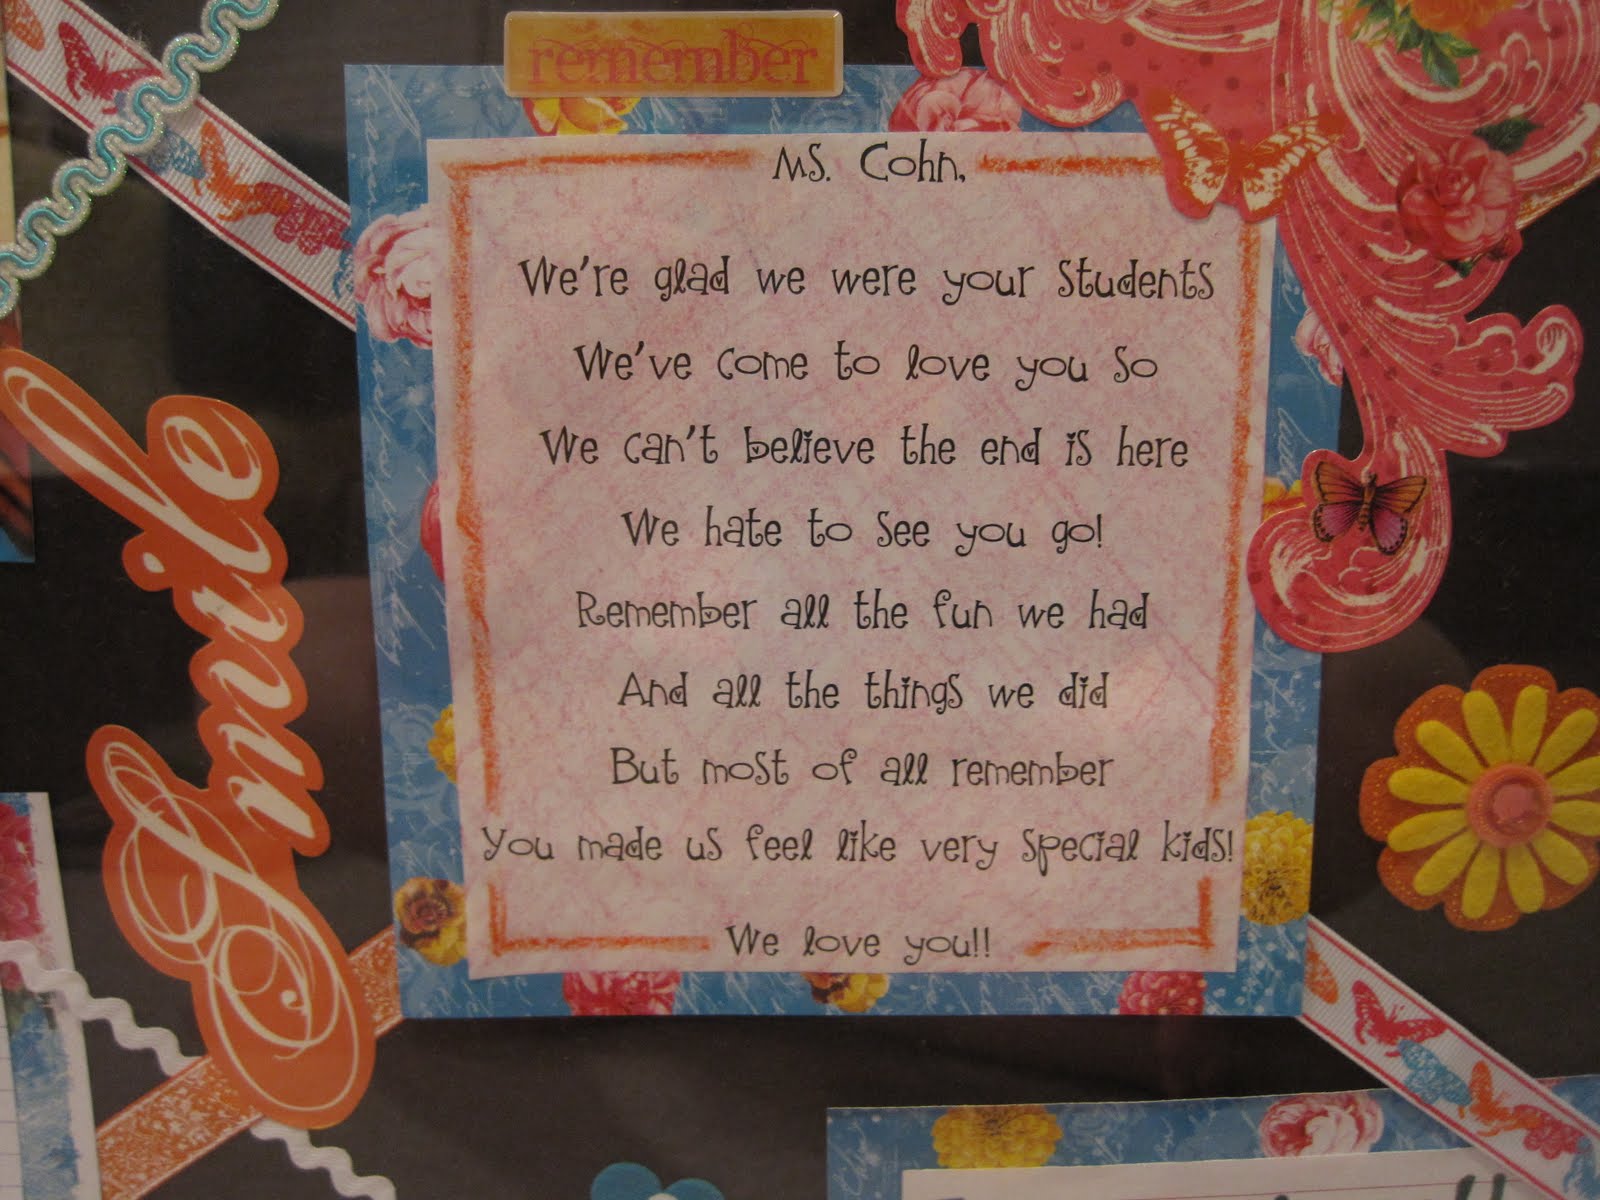 remember
Ms. Cohn,
We're glad we were your students
We've come to love you so
We can't believe the end is here
We hate to see you go!
Remember all the fun we had
And all the things we did
But most of all remember
You made us feel like very special kids!
We love you!!
Smile